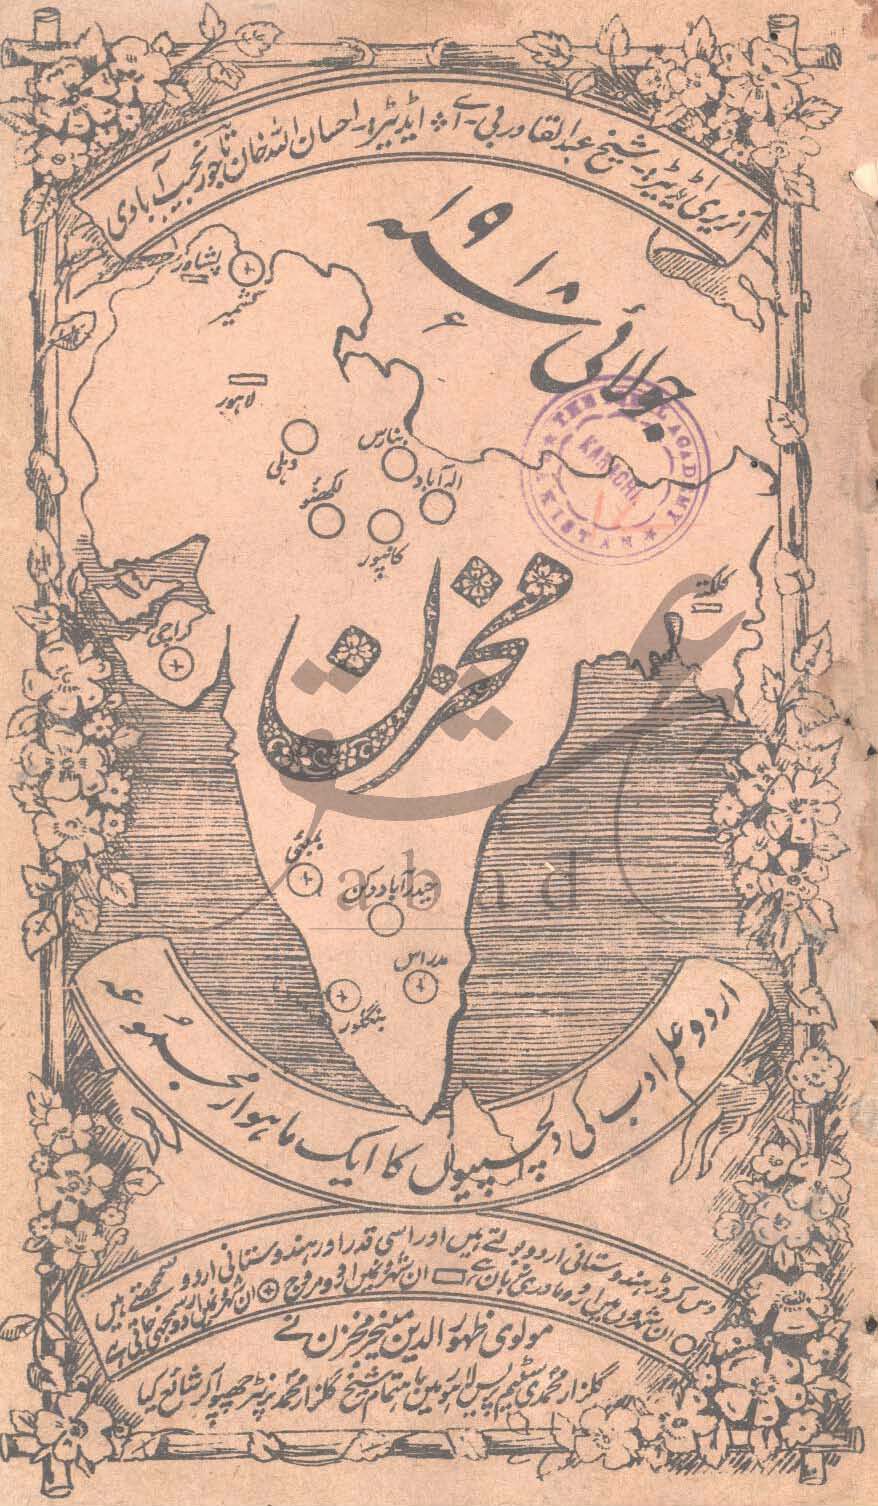 آنریری ایڈیٹر۔ شیخ عبدالقادر بی۔ اے ❊ ایڈیٹر۔ احسان اللہ خان تاجور نجیب آبادی
جولائی ۱۹۱۸ء
پشاور
کشمیر
لاہور
دہلی
بنارس
الہ آباد
لکھنؤ
کانپور
THE ACADEMY
KARACHI
PAKISTAN
کلکتہ
کراچی
مخزن
بمبئی
حیدرآباد دکن
abad
مدراس
بنگلور
اردو علم ادب کی دلچسپیوں کا ایک ماہوار مجموعہ
دس کروڑ ہندوستانی اردو بولتے ہیں اور اسی قدر اور ہندوستانی اردو سمجھتے ہیں
○ ان شہروں میں اردو مادری زبان ہے ▭ ان شہروں میں اردو مروج ⊕ ان شہروں میں اردو سمجھی جاتی ہے
مولوی ظہور الدین مینیجر مخزن نے
گلزار محمدی سٹیم پریس لاہور میں باہتمام شیخ گلزار محمد پرنٹر چھپوا کر شائع کیا